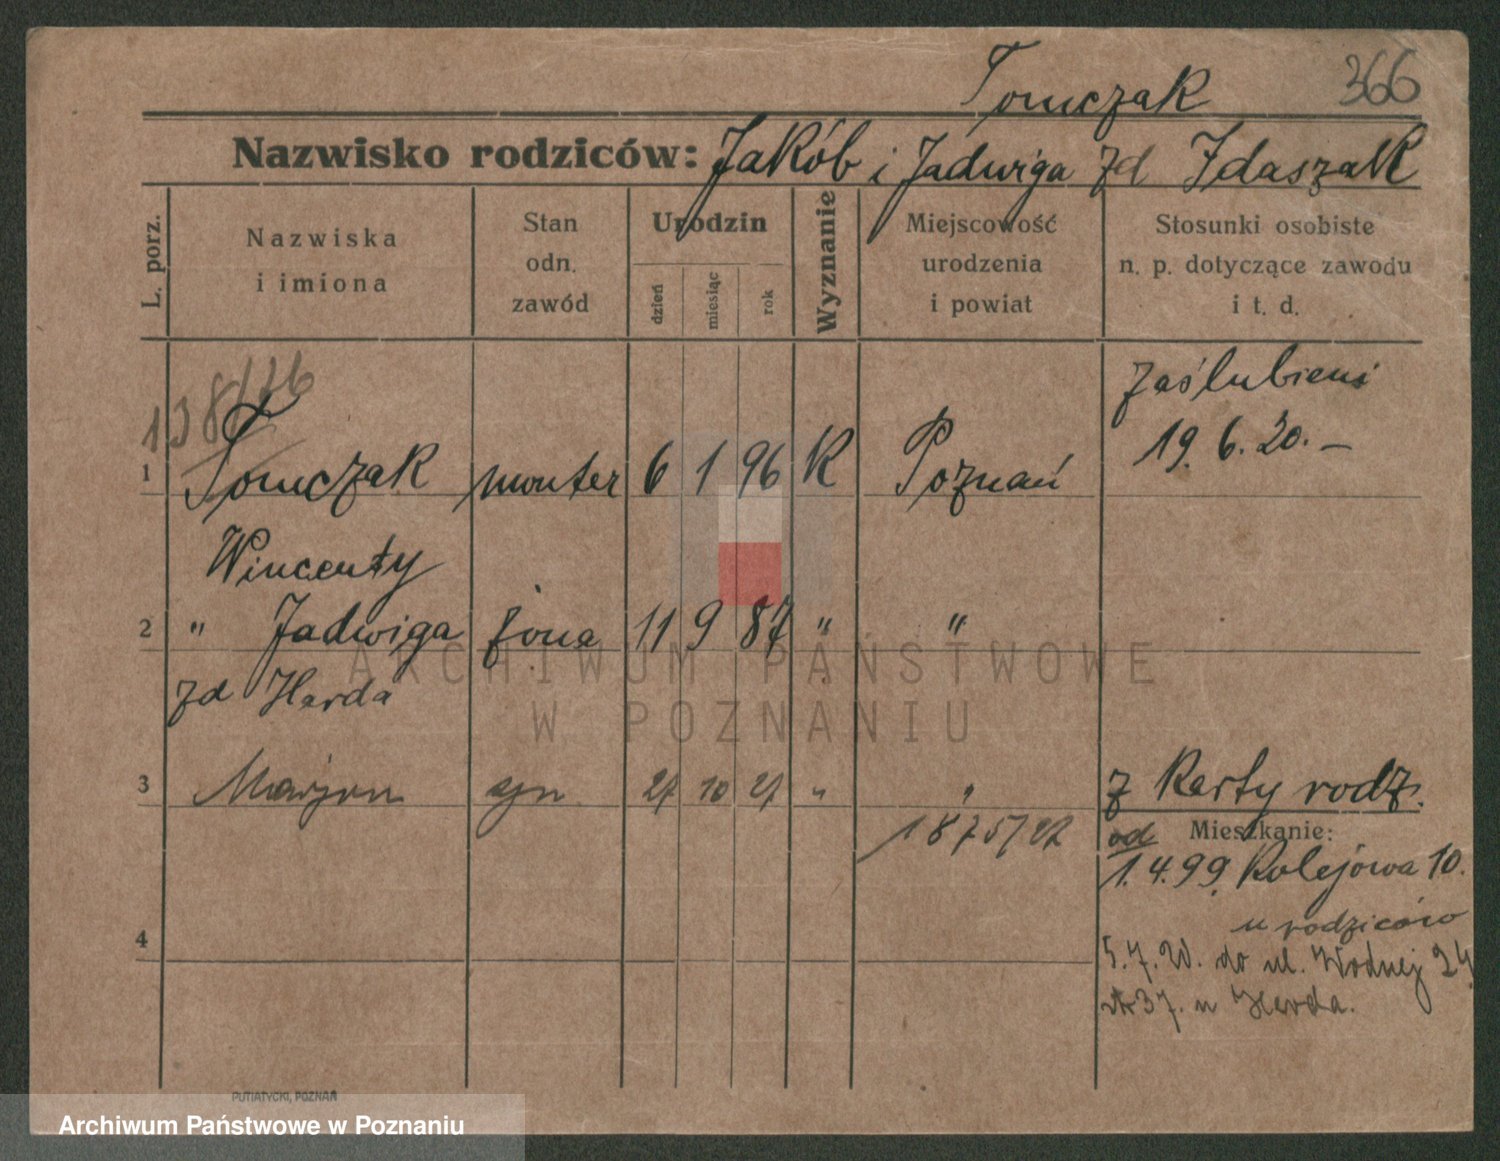 Tomczak 366
Nazwisko rodziców: Jakób i Jadwiga zd Idaszak
L. porz.
Nazwiska
i imiona
Stan
odn.
zawód
Urodzin
dzień
miesiąc
rok
Wyznanie
Miejscowość
urodzenia
i powiat
Stosunki osobiste
n. p. dotyczące zawodu
i t. d.
138/26
zaślubieni
19. 6. 20. –
1 Tomczak monter 6 1 96 K Poznań
Wincenty
2 " Jadwiga żona 11 9 87 " "
zd Herda
3 Marjan syn 27 10 27 " " z Karty rodz.
1875/27
Mieszkanie:
od
1.4.99. Kolejowa 10.
u rodziców
4
5.7.20. do ul. Wodnej 24
37. u Herda.
ARCHIWUM PAŃSTWOWE
W POZNANIU
PUTIATYCKI, POZNAŃ
Archiwum Państwowe w Poznaniu